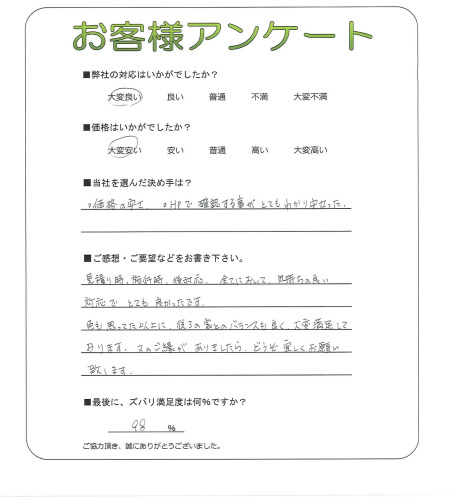 お客様アンケート
■弊社の対応はいかがでしたか？
大変良い 良い 普通 不満 大変不満
■価格はいかがでしたか？
大変安い 安い 普通 高い 大変高い
■当社を選んだ決め手は？
○価格の安さ、 ○HPで確認する事がとてもわかりやすかった。
■ご感想・ご要望などをお書き下さい。
見積り時、施行時、後対応、全てにおいて、気持ちの良い
対応で とても 良かったです。
色も思ってた以上に、 家とのバランスも良く、大変満足して
おります。又のご縁が ありましたら、どうぞ宜しくお願い
致します。
■最後に、ズバリ満足度は何％ですか？
98 ％
ご協力頂き、誠にありがとうございました。